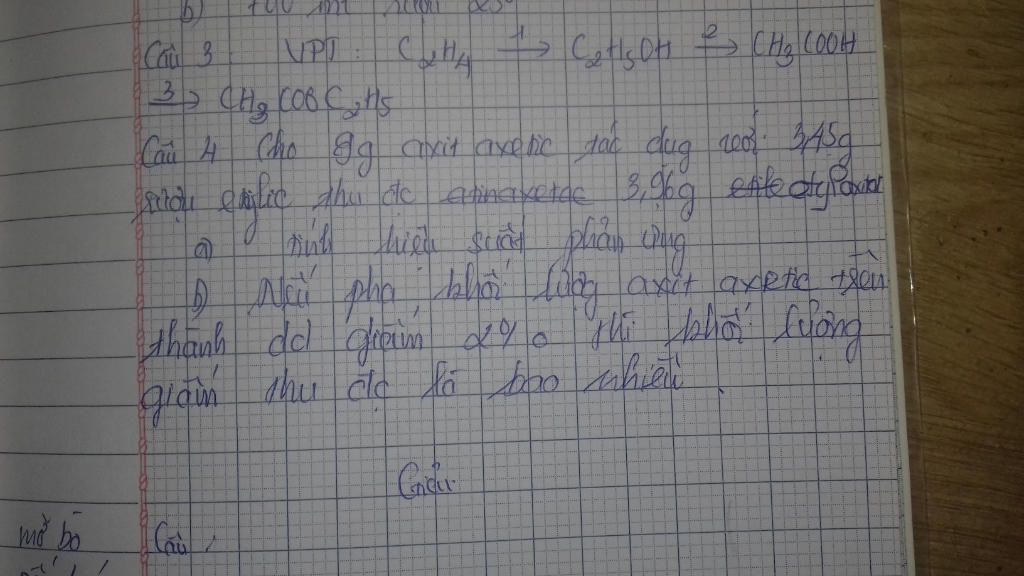 b)
Câu 3: VPT: C₂H₄ —1→ C₂H₅OH —2→ CH₃COOH
—3→ CH₃COOC₂H₅
Câu 4 Cho 9g axit axetic tác dụg với 3,45g
rượu etylic thu đc 3,96g
a) tính hiệu suất phản ứng
b) Nếu pha khối lượg axit axetic trên
thành dd giấm 2% thì khối lượng
giấm thu đc là bao nhiêu
Giải
Câu
mở bò